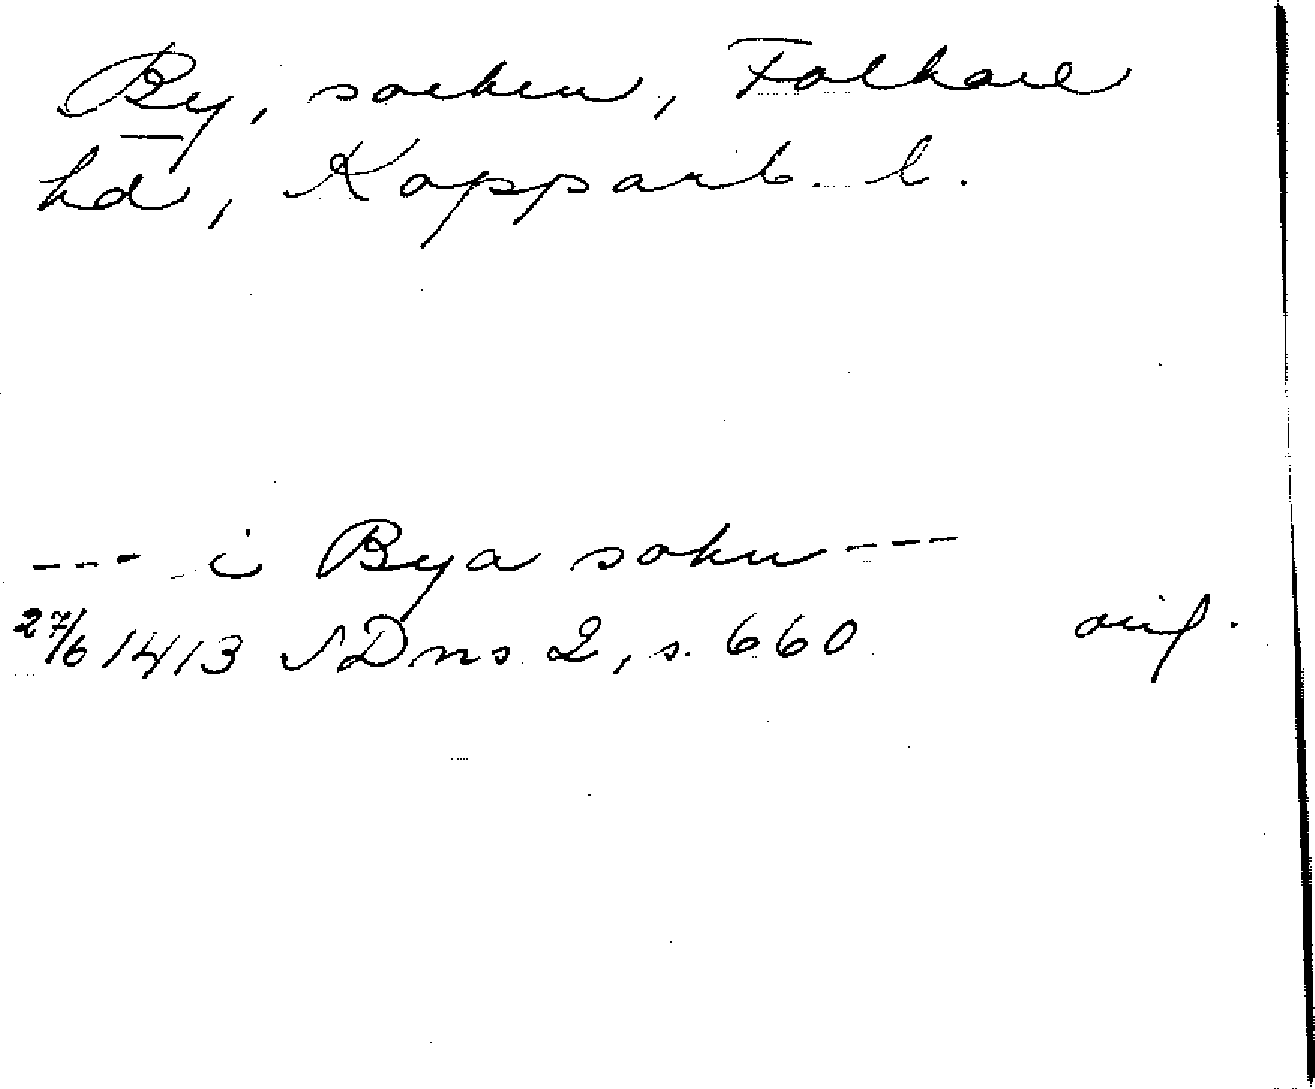 By, socken, Folkare
hd, Kopparb. l.
--- i Bya sokn ---
27/6 1413 SDns 2, s. 660 orig.